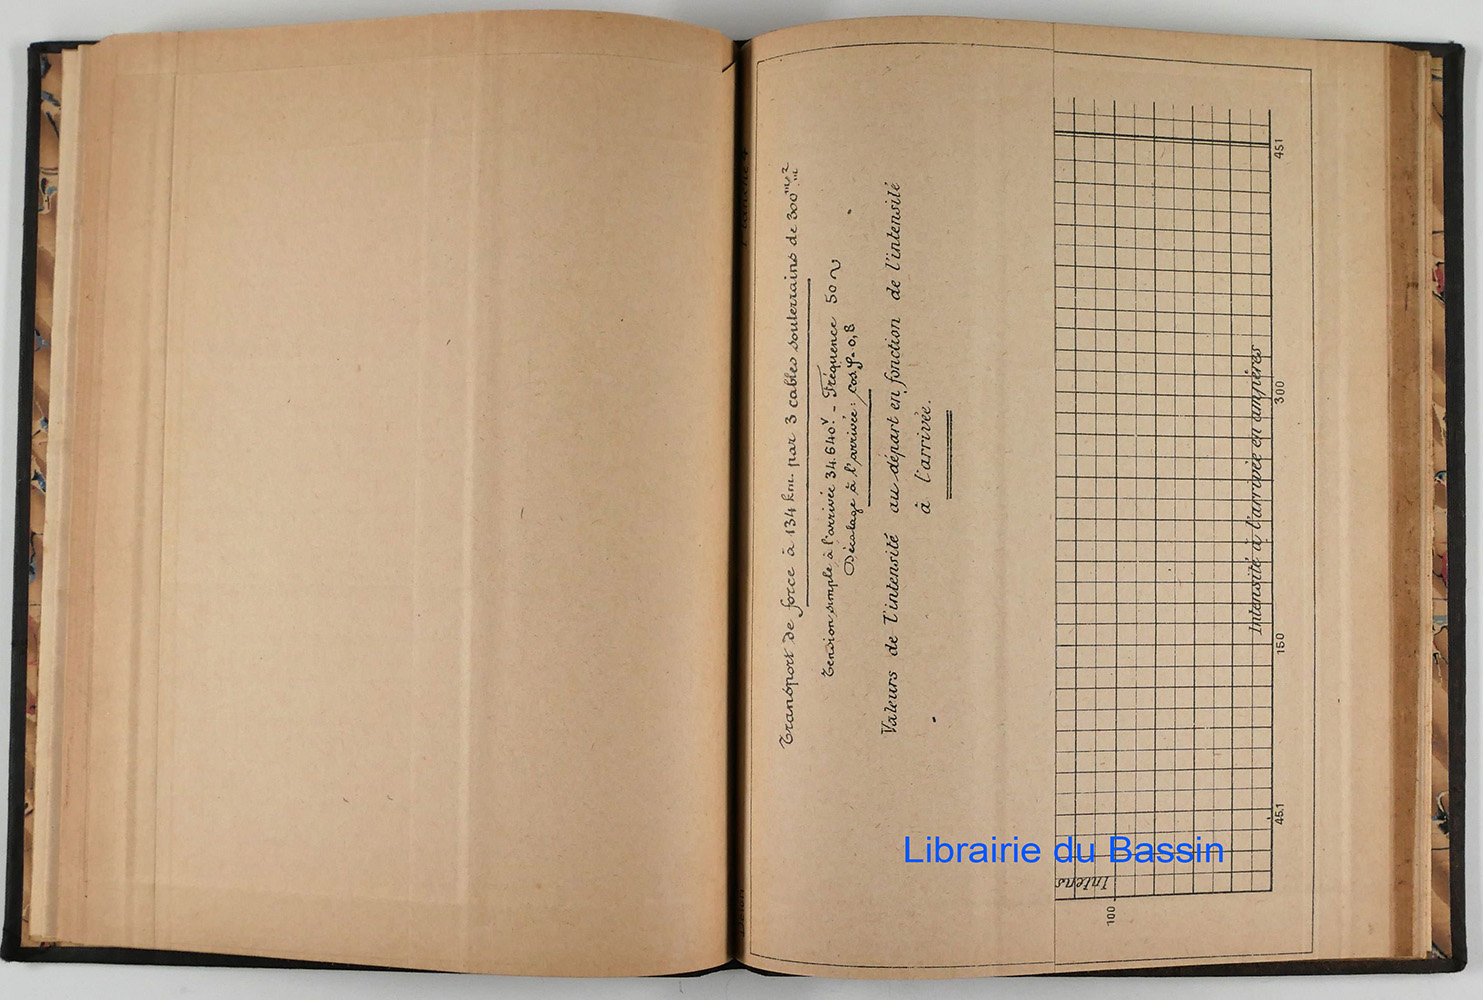 Transport de force à 134 km. par 3 cables souterrains de 300 m/m²
Tension simple à l'arrivée 34.640ᵛ. – Fréquence 50 ~
Décalage à l'arrivée : cos φ = 0,8
Valeurs de l'intensité au départ en fonction de l'intensité
à l'arrivée.
Intens
100
45.1
150
300
451
Intensité à l'arrivée en ampères
Librairie du Bassin